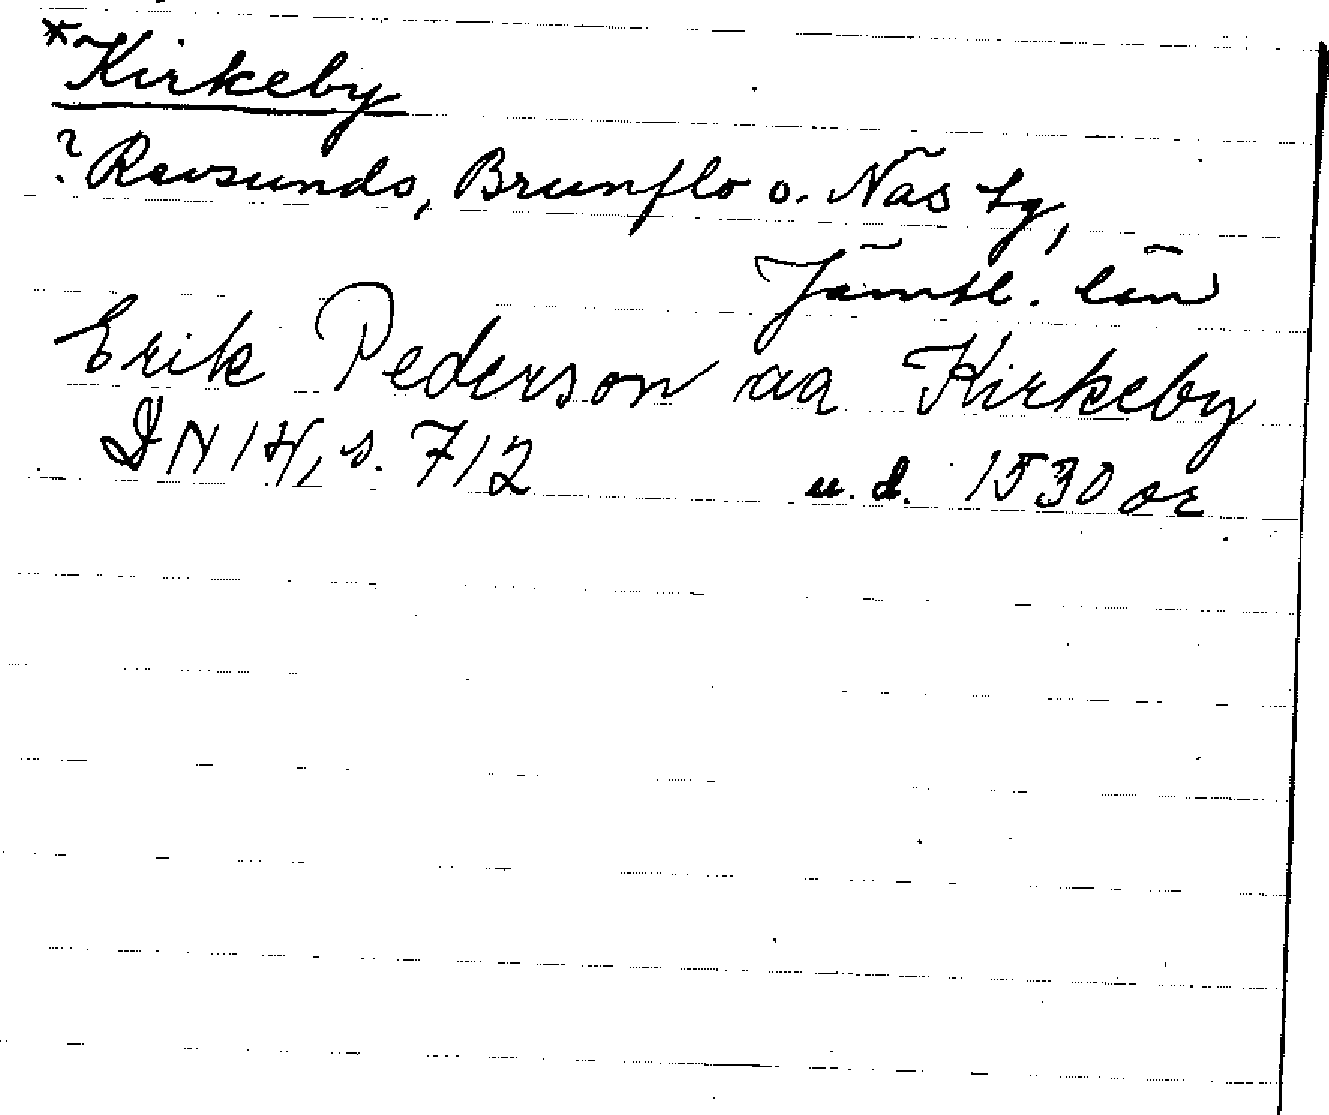 *Kirkeby
? Revsunds, Brunflo o. Näs tg,
Jämtl. län
Erik Pederson aa Kirkeby
DN 14, s. 712 u. d. 1530 or